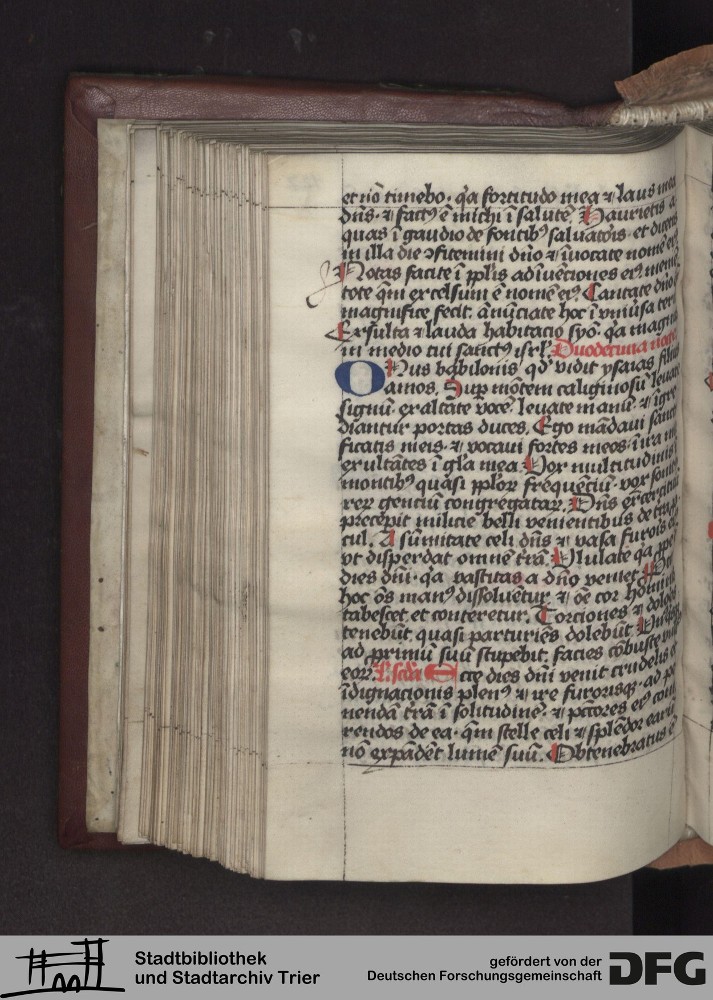 et nō timebo· q̄a fortitudo mea ⁊ laus mea
dn̄s· ⁊ factꝰ ē michi ī salutē· Haurietis a
quas ī gaudio de fontibꝰ saluatoris· et dicetis
in illa die ɔfitemini dn̄o ⁊ īuocate nomē eiꝰ
Notas facite ī pplīs adīuēciones eiꝰ· meme
tote qm̄ excelsum ē nomē eiꝰ Cantate dn̄o
magnifice fecit· ānūciate hoc ī vniūsa terra
Exsulta ⁊ lauda habitacio syō· q̄a magnꝰ
in medio tui sanctꝰ isrl̄·
O Nus babilonis· qd̄ vidit ysaias filiꝰ
amos. Suꝑ mōtem caliginosū leuate
signū· exaltate vocē· leuate manū· ⁊ īgre
diantur portas duces. Ego mādaui sancti
ficatis meis· ⁊ vocaui fortes meos· ī ira
exultātes ī gl̄a mea· Vox multitudinis
montibꝰ quasi pplōꝝ frequēciū· vox sonitꝰ
regū genciū congregataꝝ. Dn̄s exercituū
precepit milicie belli venientibus de terra
cul. A sūmitate celi dn̄s ⁊ vasa furoris eiꝰ
vt disperdat omnē trā̄. Vlulate q̄a ꝓpe
dies dn̄i· q̄a vastitas a dn̄o veniet·
hoc ōs manꝰ dissoluētur ⁊ ōe cor hominis
tabescet et conteretur. Torciones ⁊ dolores
tenebūt· quasi parturiēs dolebūt.
ad primū suū stupebit· facies cōbuste
eoꝝ. Ecce dies dn̄i venit crudelis
īdignacionis plenꝰ ⁊ ire furorisqꝫ· ad po
nendā trā̄ ī solitudinē· ⁊ pctōres eiꝰ
rendos de ea· qm̄ stelle celi ⁊ splēdor earū
nō expādēt lumē suū. Obtenebratus ē
Stadtbibliothek
und Stadtarchiv Trier
gefördert von der
Deutschen Forschungsgemeinschaft
DFG